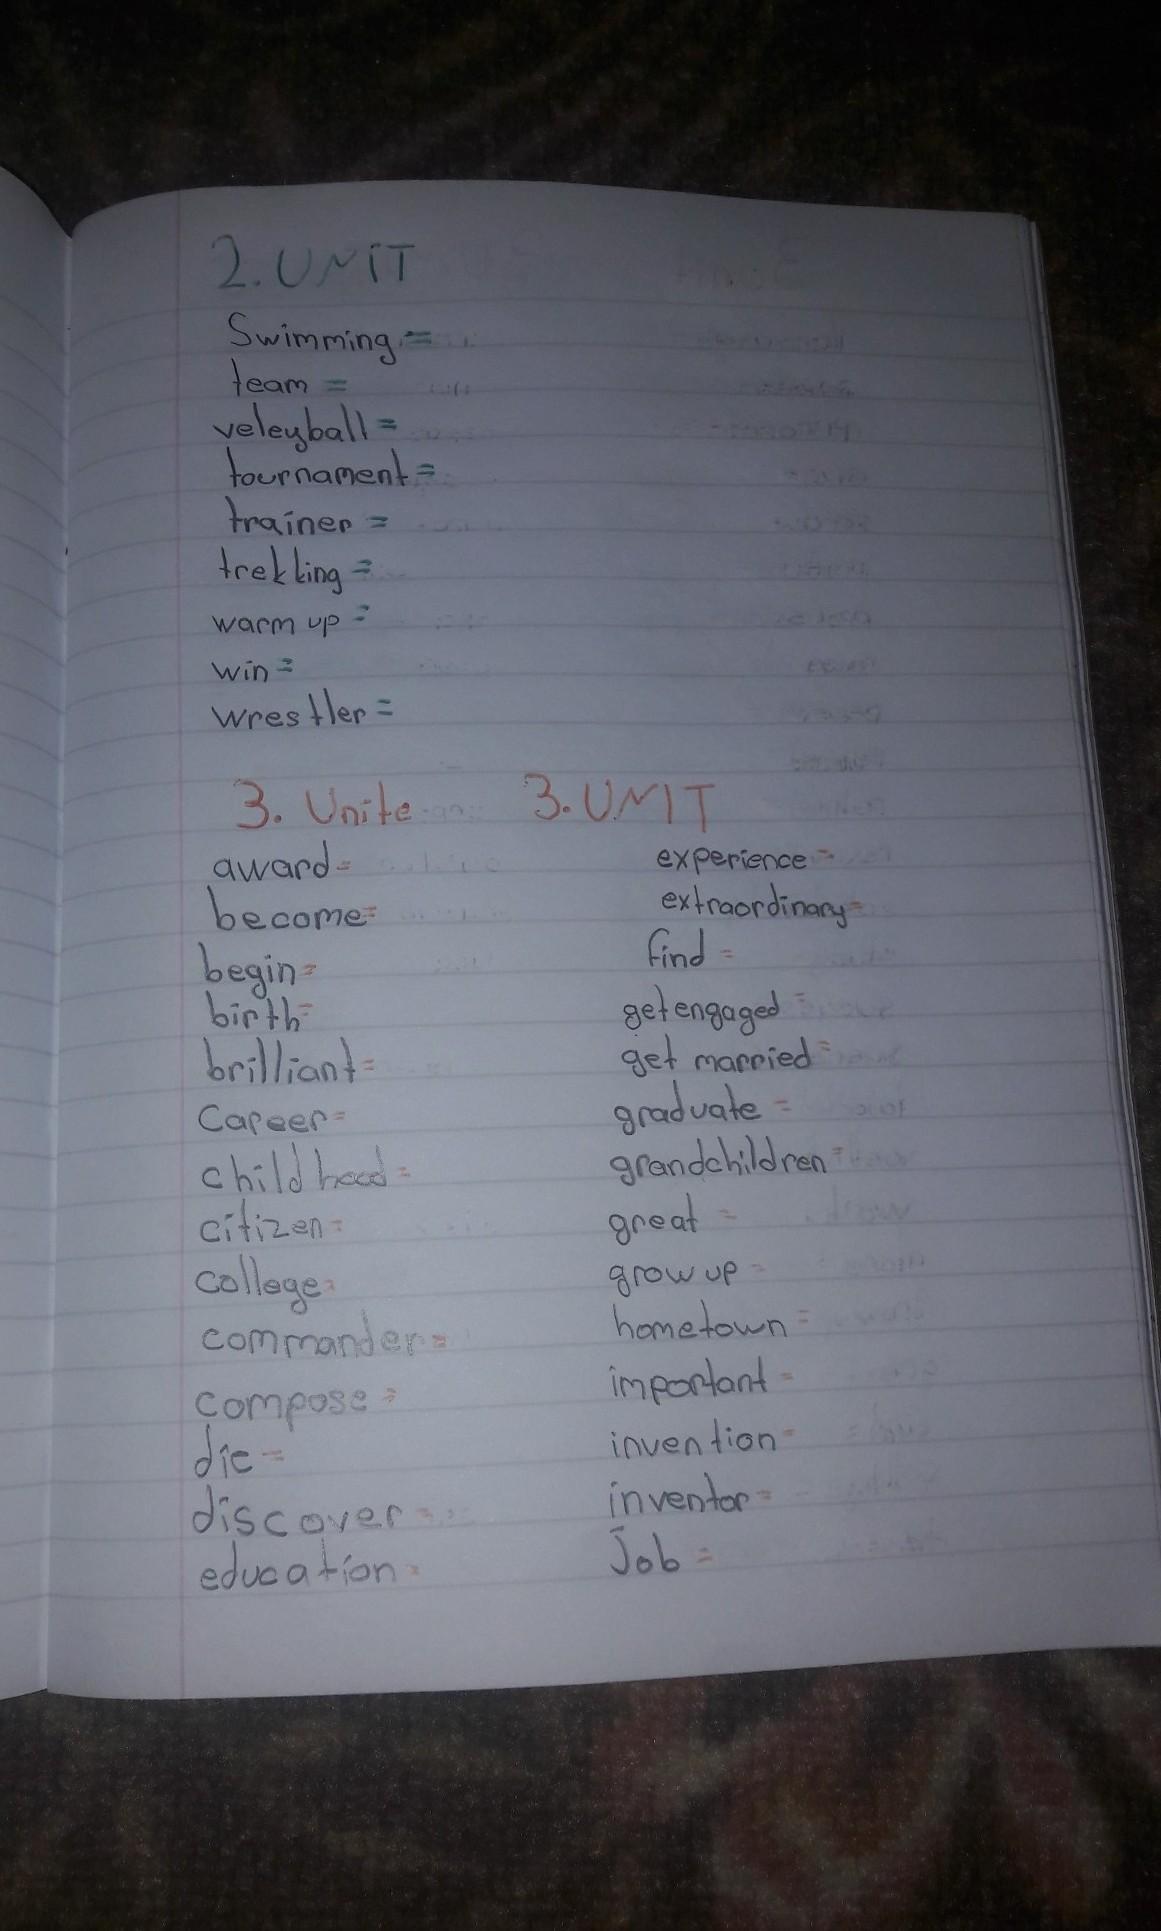 2. UNIT
Swimming =
team =
veleyball =
tournament =
trainer =
trekking =
warm up =
win =
wrestler =
3. Unite
award =
become =
begin =
birth =
brilliant =
Career =
childhood =
citizen =
college =
commander =
compose =
die =
discover =
education =
3. UNIT
experience =
extraordinary =
find =
get engaged =
get married =
graduate =
grandchildren =
great =
grow up =
hometown =
important =
invention =
inventor =
Job =